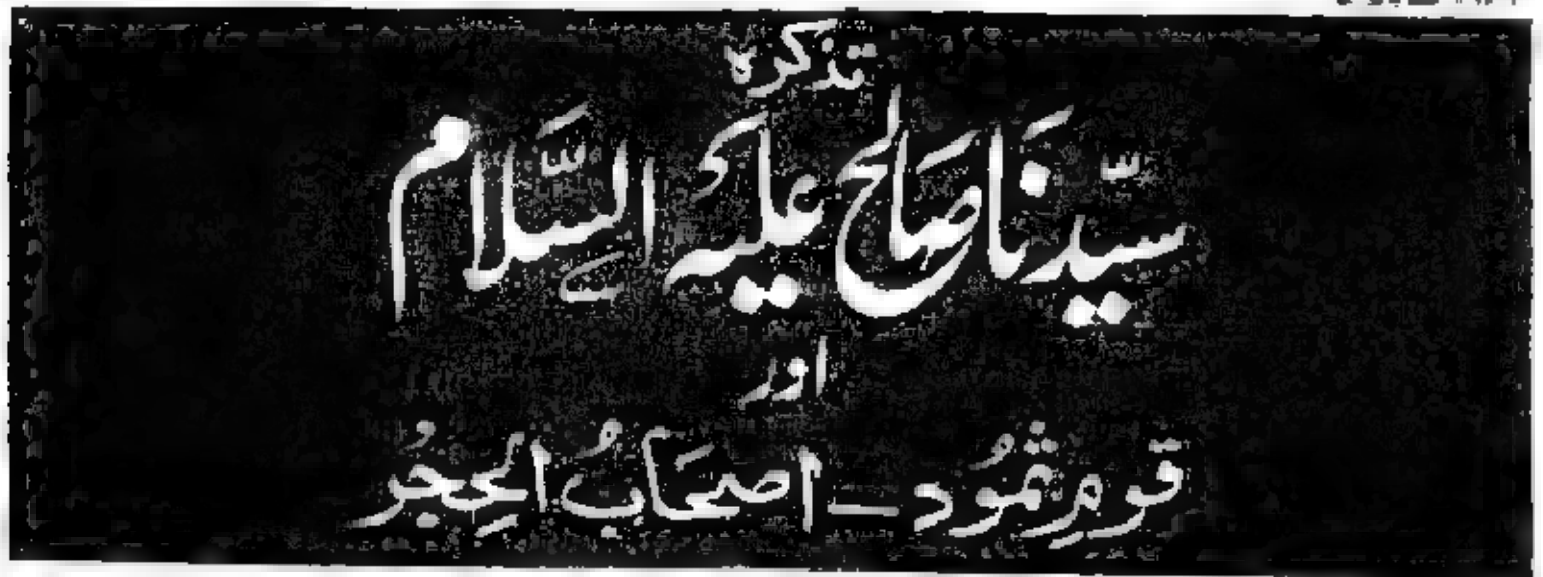 تذکرہ
سیّدنَا صَالح عَلَیہِ السَّلَام
اور
قومِ ثمُود ـ اصحَابُ الحِجرُ